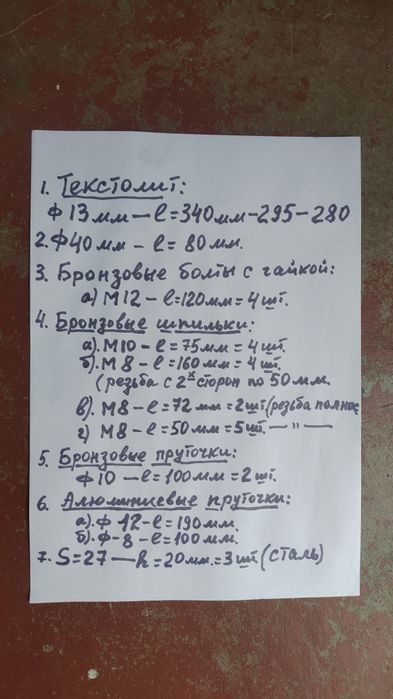 1. Текстолит:
Ф13мм — l=340мм-295-280
2. Ф40мм — l= 80мм.
3. Бронзовые болты с гайкой:
а) М12 – l=120мм= 4шт.
4. Бронзовые шпильки:
а). М10 – l= 75мм = 4шт.
б). М8 – l=160мм = 4шт.
(резьба с 2х сторон по 50мм.
в). М8 – l= 72мм = 2шт(резьба полное
г) М8 – l= 50мм = 5шт. — " —
5. Бронзовые пруточки:
Ф10 — l=100мм=2шт.
6. Алюминиевые пруточки:
а). Ф 12 – l= 190мм.
б). Ф-8 – l= 100мм.
7. S=27 — h=20мм.=3шт(сталь)